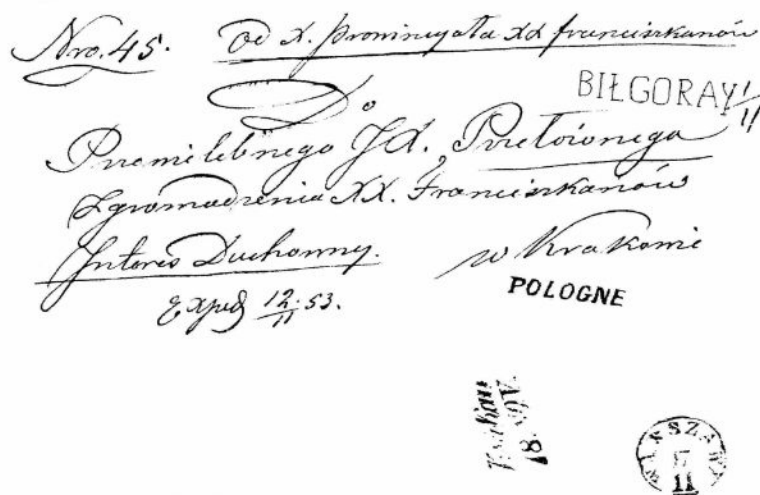 Nro. 45. Od X. Prowincyała XX franciszkanów
BIŁGORAY 1/11
Do
Przewielebnego JX. Przełożonego
Zgromadzenia XX. Franciszkanów
Interes Duchowny. w Krakowie
POLOGNE
Exped 12/11 53.
WARSZAWA
17
11